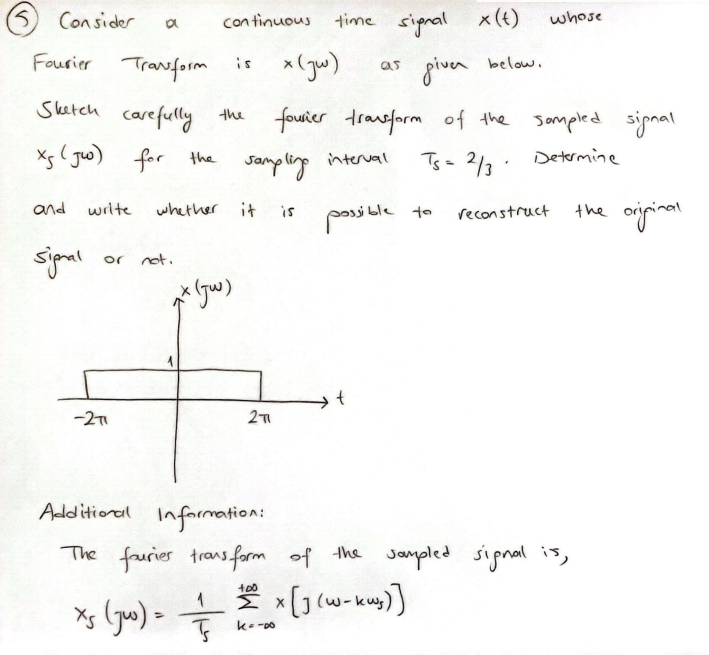 ⑤ Consider a continuous time signal x(t) whose
Fourier Transform is x(jw) as given below.
Sketch carefully the fourier transform of the sampled signal
Xs(jw) for the sampling interval Ts = 2/3. Determine
and write whether it is possible to reconstruct the original
signal or not.
x(jw)
1
t
-2π 2π
Additional Information:
The fourier transform of the sampled signal is,
Xs(jw) = 1/Ts +∞ Σ k=-∞ x[j(w-kws)]